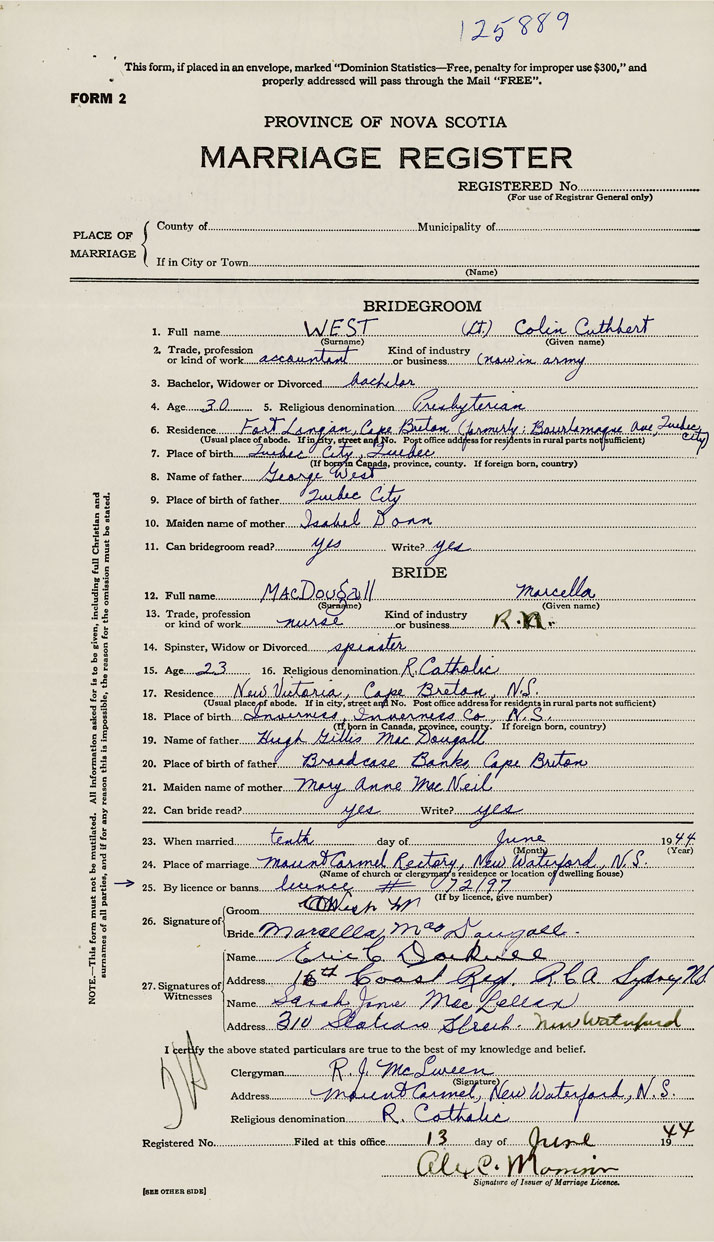 125889
This form, if placed in an envelope, marked "Dominion Statistics—Free, penalty for improper use $300," and
properly addressed will pass through the Mail "FREE".
FORM 2
PROVINCE OF NOVA SCOTIA
MARRIAGE REGISTER
REGISTERED No.
(For use of Registrar General only)
PLACE OF MARRIAGE
County of Municipality of
If in City or Town
(Name)
BRIDEGROOM
1. Full name WEST (Lt.) Colin Cuthbert
(Surname) (Given name)
2. Trade, profession or kind of work accountant Kind of industry or business (now in army
3. Bachelor, Widower or Divorced bachelor
4. Age 30 5. Religious denomination Presbyterian
6. Residence Fort Lingan, Cape Breton (formerly: Bourlamaque Ave, Quebec City)
(Usual place of abode. If in city, street and No. Post office address for residents in rural parts not sufficient)
7. Place of birth Quebec City, Quebec
(If born in Canada, province, county. If foreign born, country)
8. Name of father George West
9. Place of birth of father Quebec City
10. Maiden name of mother Isabel Donn
11. Can bridegroom read? yes Write? yes
BRIDE
12. Full name MacDougall Marcella
(Surname) (Given name)
13. Trade, profession or kind of work nurse Kind of industry or business R.N.
14. Spinster, Widow or Divorced spinster
15. Age 23 16. Religious denomination R. Catholic
17. Residence New Victoria, Cape Breton, N.S.
(Usual place of abode. If in city, street and No. Post office address for residents in rural parts not sufficient)
18. Place of birth Inverness, Inverness Co., N.S.
(If born in Canada, province, county. If foreign born, country)
19. Name of father Hugh Gillis MacDougall
20. Place of birth of father Broadcase Banks Cape Breton
21. Maiden name of mother Mary Anne MacNeil
22. Can bride read? yes Write? yes
23. When married tenth day of June 1944
(Month) (Year)
24. Place of marriage Mount Carmel Rectory, New Waterford, N.S.
(Name of church or clergyman's residence or location of dwelling house)
25. By licence or banns licence # 072197
(If by licence, give number)
26. Signature of
Groom West
Bride Marcella MacDougall.
27. Signatures of Witnesses
Name Eric C
Address 16th Coast Reg. RCA Sydney NS
Name Sarah Jane MacLellan
Address 310 Street. New Waterford
I certify the above stated particulars are true to the best of my knowledge and belief.
Clergyman R. J. McSween
(Signature)
Address Mount Carmel, New Waterford, N.S.
Religious denomination R. Catholic
Registered No. Filed at this office 13 day of June 1944
Alex C.
Signature of Issuer of Marriage Licence.
[SEE OTHER SIDE]
NOTE.—This form must not be mutilated. All information asked for is to be given, including full Christian and
surnames of all parties, and if for any reason this is impossible, the reason for the omission must be stated.